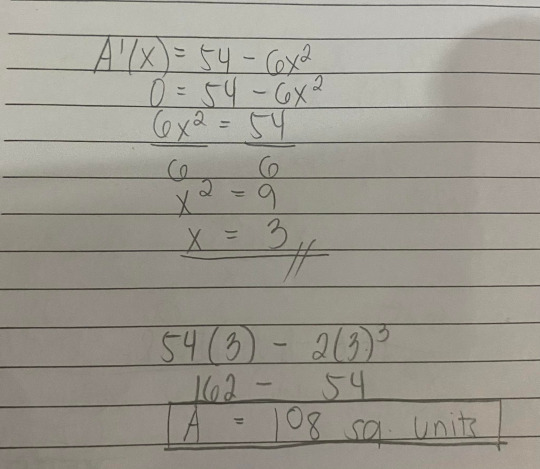 A'(x) = 54 - 6x²
0 = 54 - 6x²
6x² = 54
6 6
x² = 9
x = 3 //
54(3) - 2(3)³
162 - 54
A = 108 sq. units